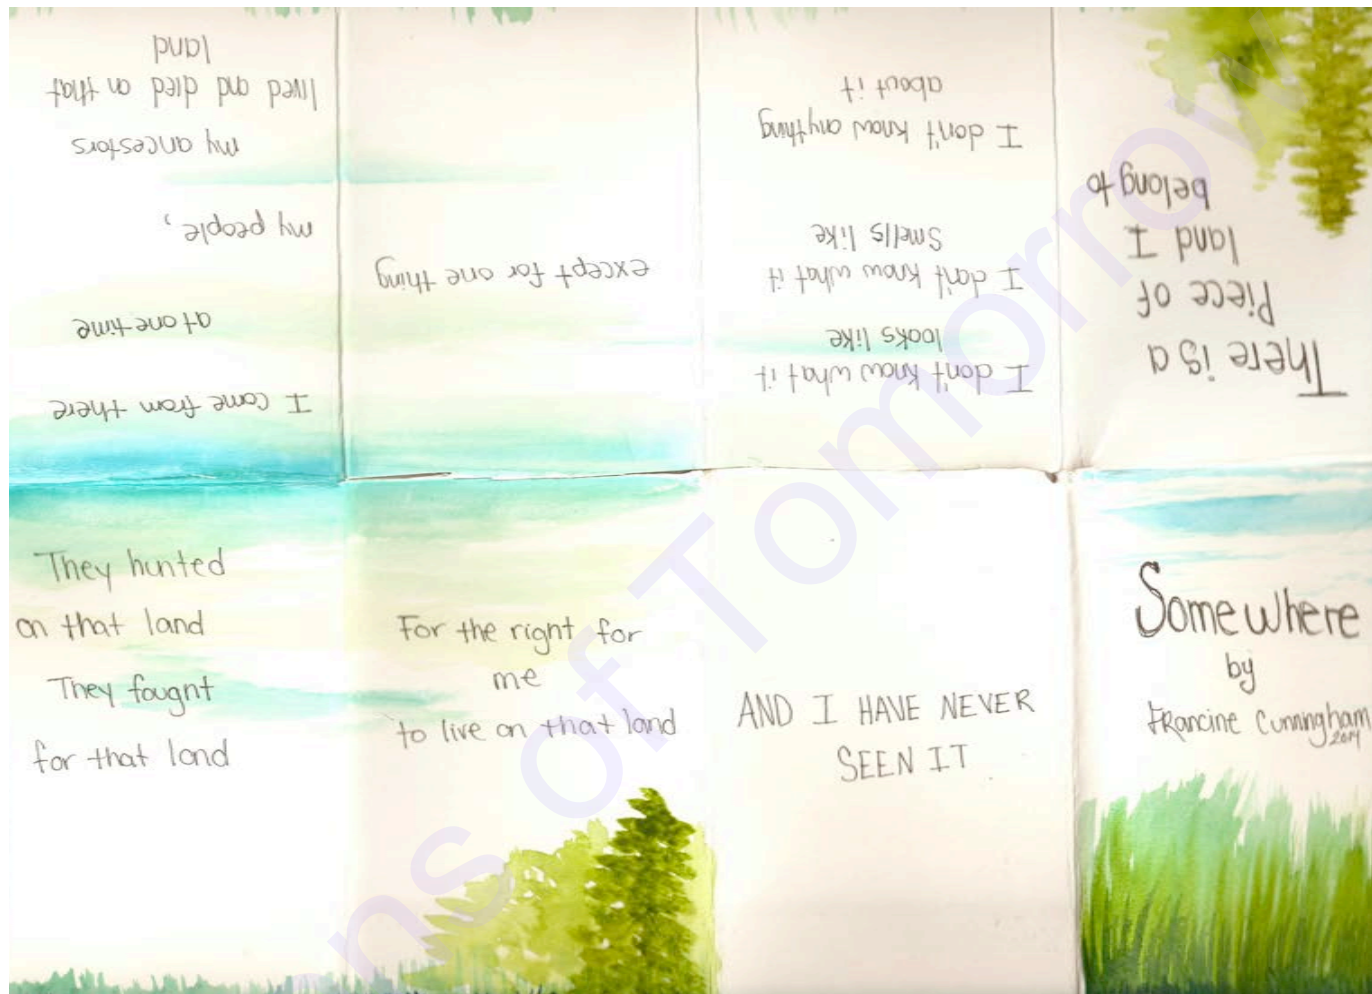 Somewhere
by
Francine Cunningham
2014
There is a
Piece of
land I
belong to
I don't know what it
looks like
I don't know what it
Smells like
I don't know anything
about it
except for one thing
I come from there
at one time
my people,
my ancestors
lived and died on that
land
They hunted
on that land
They fought
for that land
For the right for
me
to live on that land
AND I HAVE NEVER
SEEN IT
ns of Tomorrow